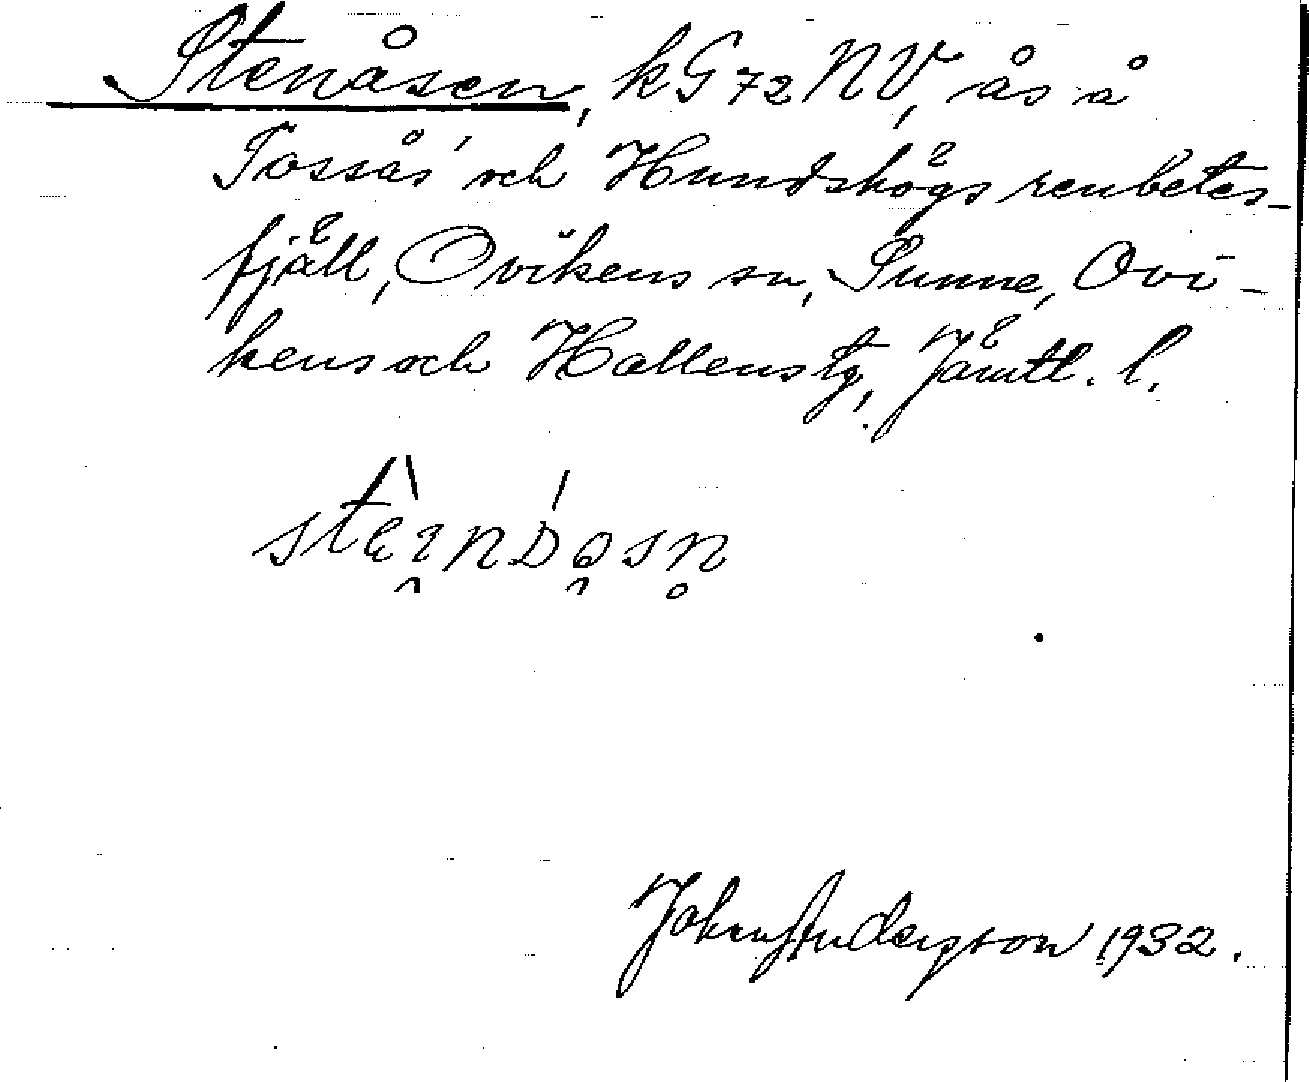 Stenåsen, kG 72 NV, ås å
Tossås' och Hundshögs renbetes-
fjäll, Ovikens sn, Sunne, Ovi-
kens och Hallens tg, Jämtl. l.
John Anderson 1932.